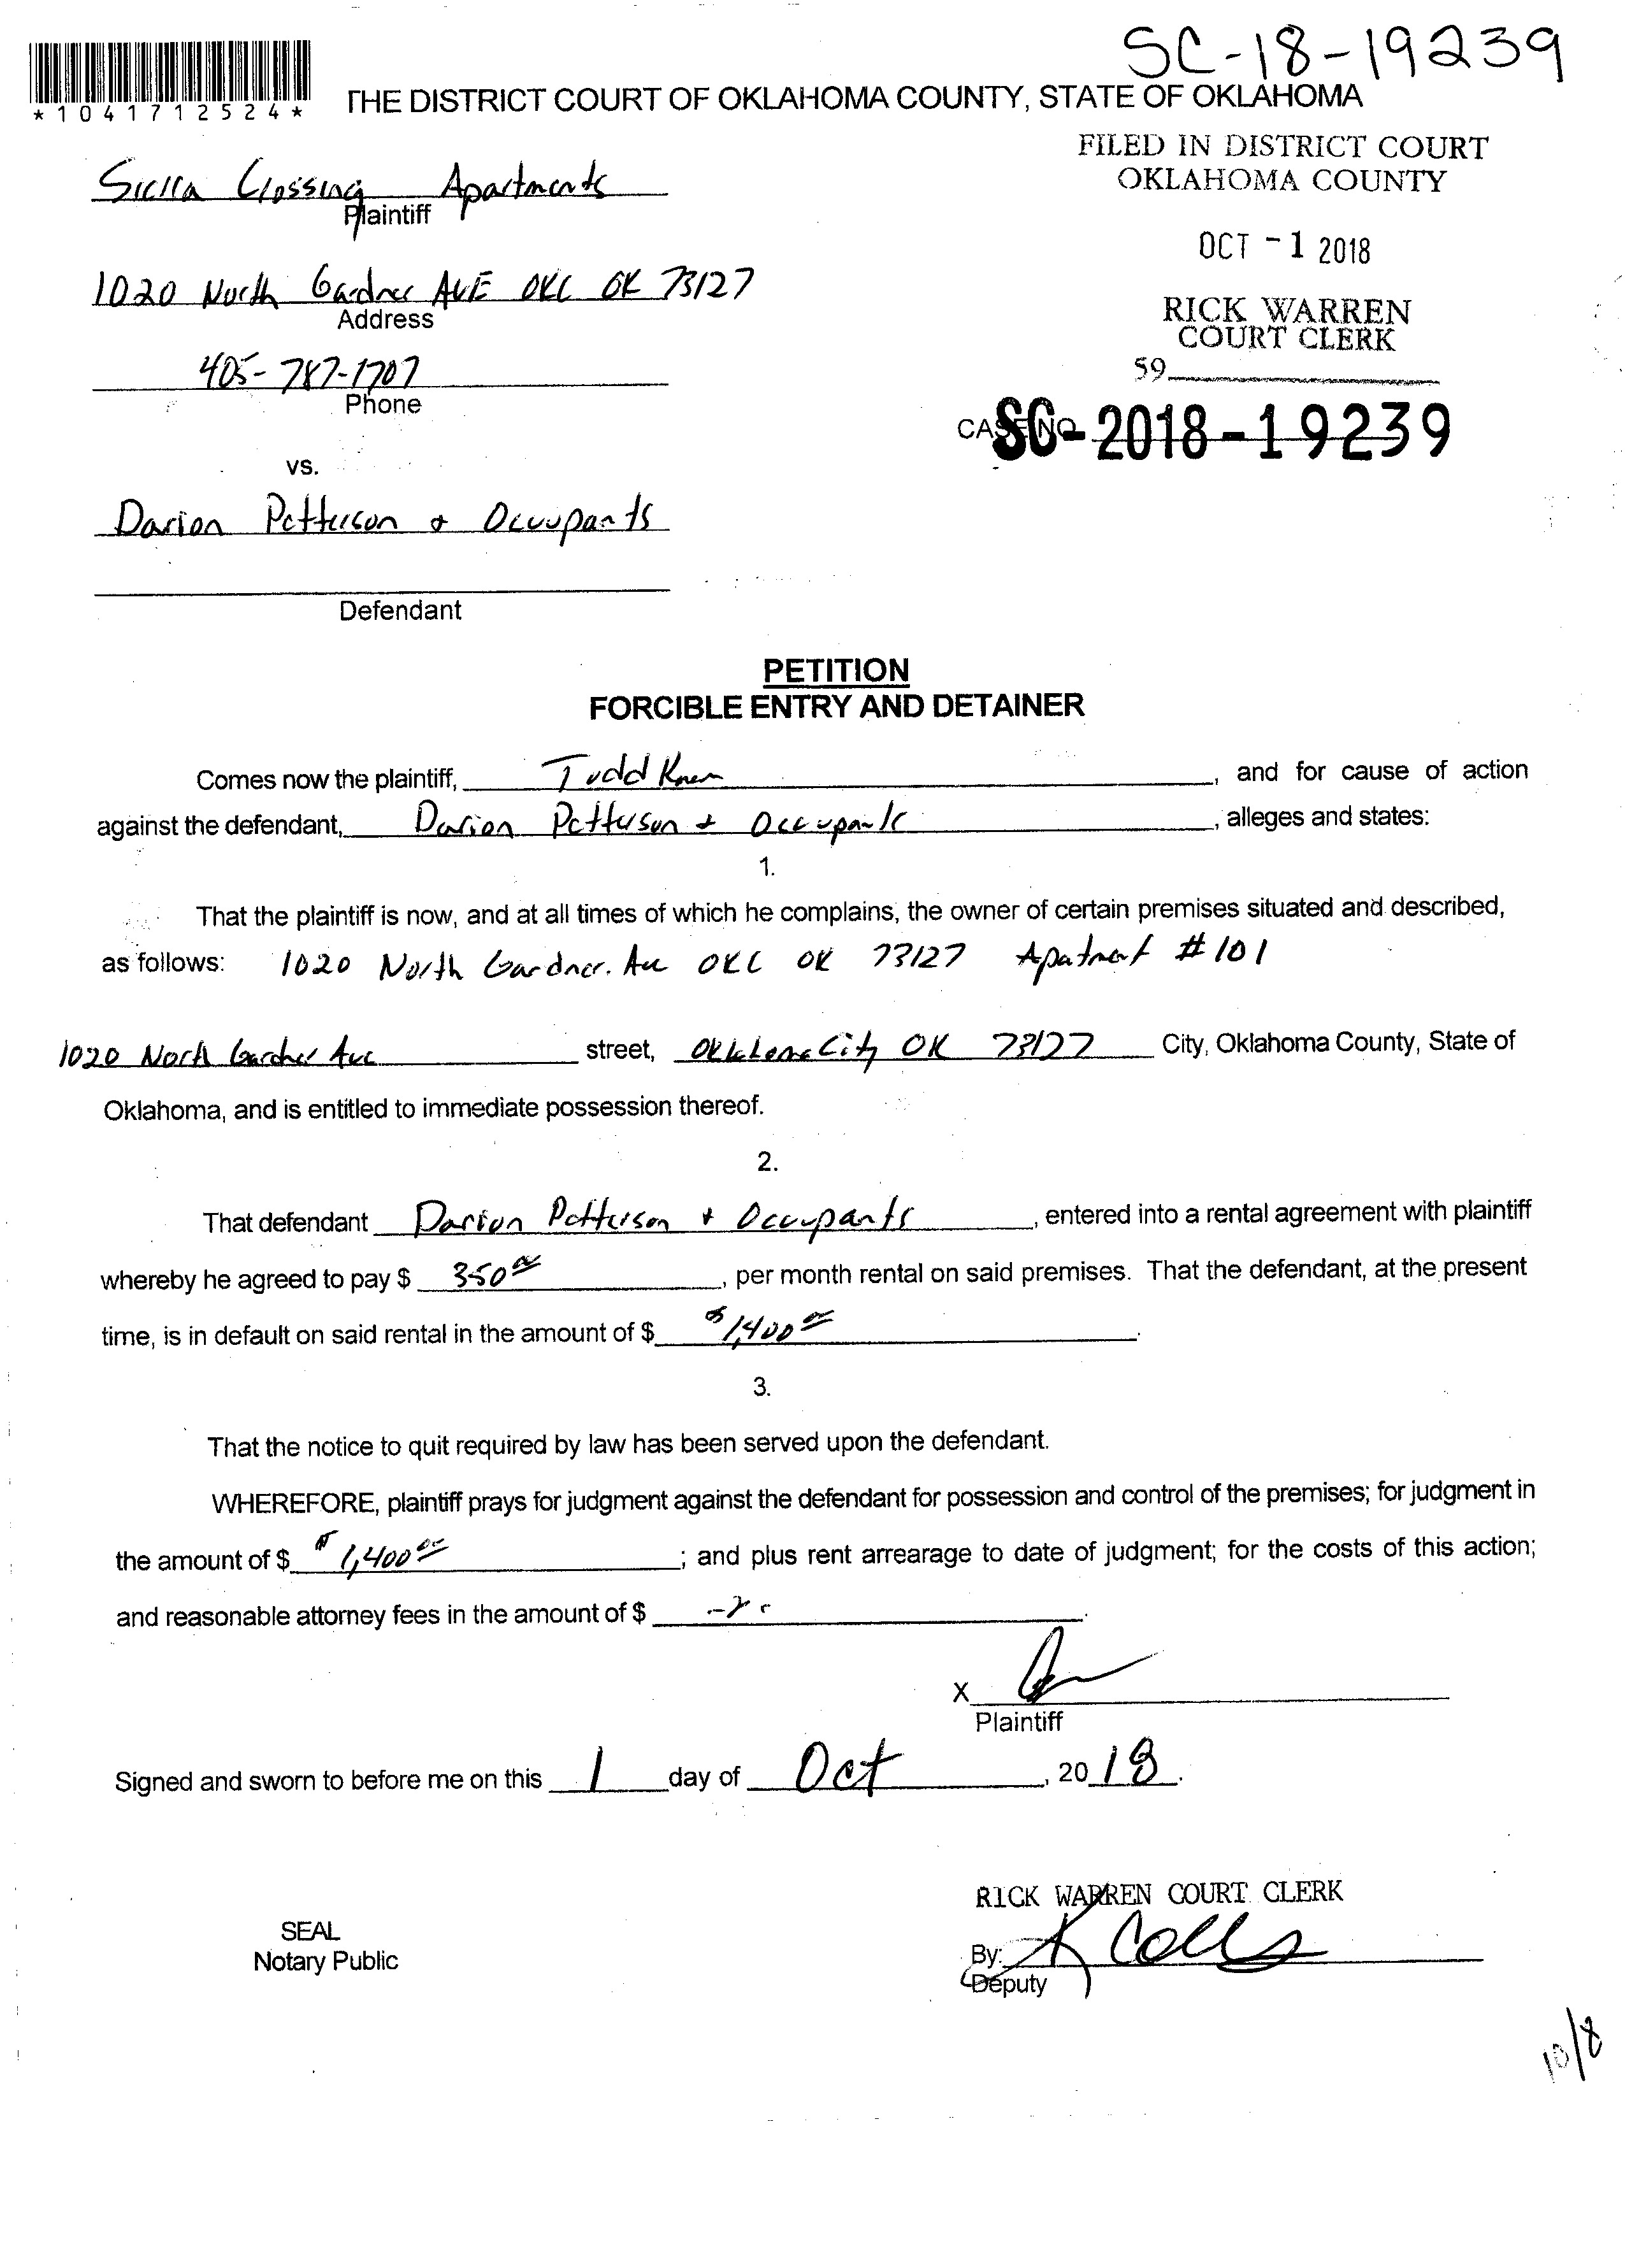 SC-18-19239
*1041712524*
THE DISTRICT COURT OF OKLAHOMA COUNTY, STATE OF OKLAHOMA
FILED IN DISTRICT COURT
OKLAHOMA COUNTY
Sierra Crossing Apartments
Plaintiff
OCT -1 2018
1020 North Gardner AVE OKC OK 73127
Address
RICK WARREN
COURT CLERK
405-787-1707
Phone
59
CASE NO SC-2018-19239
vs.
Darion Patterson + Occupants
Defendant
PETITION
FORCIBLE ENTRY AND DETAINER
Comes now the plaintiff, Todd , and for cause of action
against the defendant, Darion Patterson + Occupants , alleges and states:
1.
That the plaintiff is now, and at all times of which he complains, the owner of certain premises situated and described,
as follows: 1020 North Gardner. Ave OKC OK 73127 Apatment #101
1020 North Gardner Ave street, Oklahoma City OK 73127 City, Oklahoma County, State of
Oklahoma, and is entitled to immediate possession thereof.
2.
That defendant Darion Patterson + Occupants , entered into a rental agreement with plaintiff
whereby he agreed to pay $ 350 00 , per month rental on said premises. That the defendant, at the present
time, is in default on said rental in the amount of $ $1,400 00 .
3.
That the notice to quit required by law has been served upon the defendant.
WHEREFORE, plaintiff prays for judgment against the defendant for possession and control of the premises; for judgment in
the amount of $ $1,400 00 ; and plus rent arrearage to date of judgment; for the costs of this action;
and reasonable attorney fees in the amount of $ .
X
Plaintiff
Signed and sworn to before me on this 1 day of Oct , 20 18 .
RICK WARREN COURT CLERK
SEAL
Notary Public
By:
Deputy
10/8